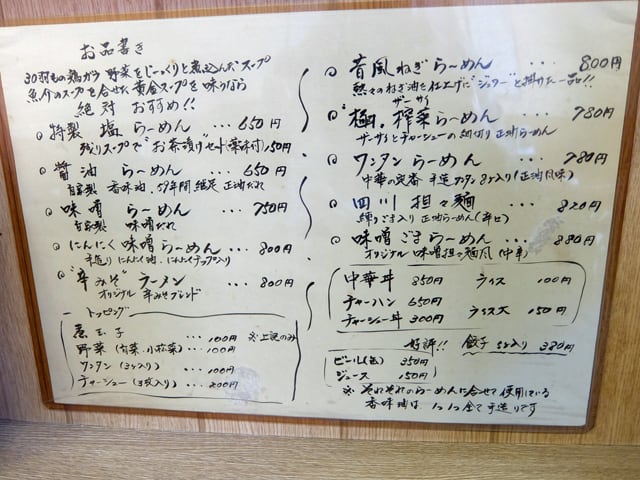 お品書き
30羽もの鶏ガラ 野菜をじーっくりと煮込んだスープ
魚介のスープを合せた黄金スープを味わうなら
絶対 おすすめ!!
特製 塩らーめん ... 650円
残りスープで"お茶漬け"セット(薬味付)150円
醤油らーめん ... 650円
自家製 香味油、59年間継足 正油だれ
味噌らーめん ... 750円
自家製 味噌だれ
にんにく味噌らーめん ... 800円
手造りにんにく油、にんにくチップ入り
"辛みそ"ラーメン ... 800円
オリジナル 辛みそブレンド
トッピング
煮玉子 ... 100円 ※上記のみ
野菜(白菜、小松菜) ... 100円
ワンタン(3ヶ入り) ... 100円
チャーシュー(3枚入り) ... 200円
昔風ねぎらーめん ... 800円
熱々のねぎ油を仕上げに"ジュワー"と掛けた一品!!
ザーサイ
"極"搾菜らーめん ... 780円
ザーサイとチャーシューの細切り 正油らーめん
ワンタンらーめん ... 780円
中華の定番 手造ワンタン8ヶ入り(正油風味)
四川 担々麺 ... 820円
練りごま入り 正油らーめん(辛口)
味噌ごまらーめん ... 880円
オリジナル 味噌担々麺風(中辛)
中華丼 850円 ライス 100円
チャーハン 650円
チャーシュー丼 300円 ライス大 150円
好評!! 餃子 5ヶ入り 380円
ビール(缶) 350円
ジュース 150円
※それぞれのらーめんに合せて使用している
香味油は、1つ1つ全て手造りです